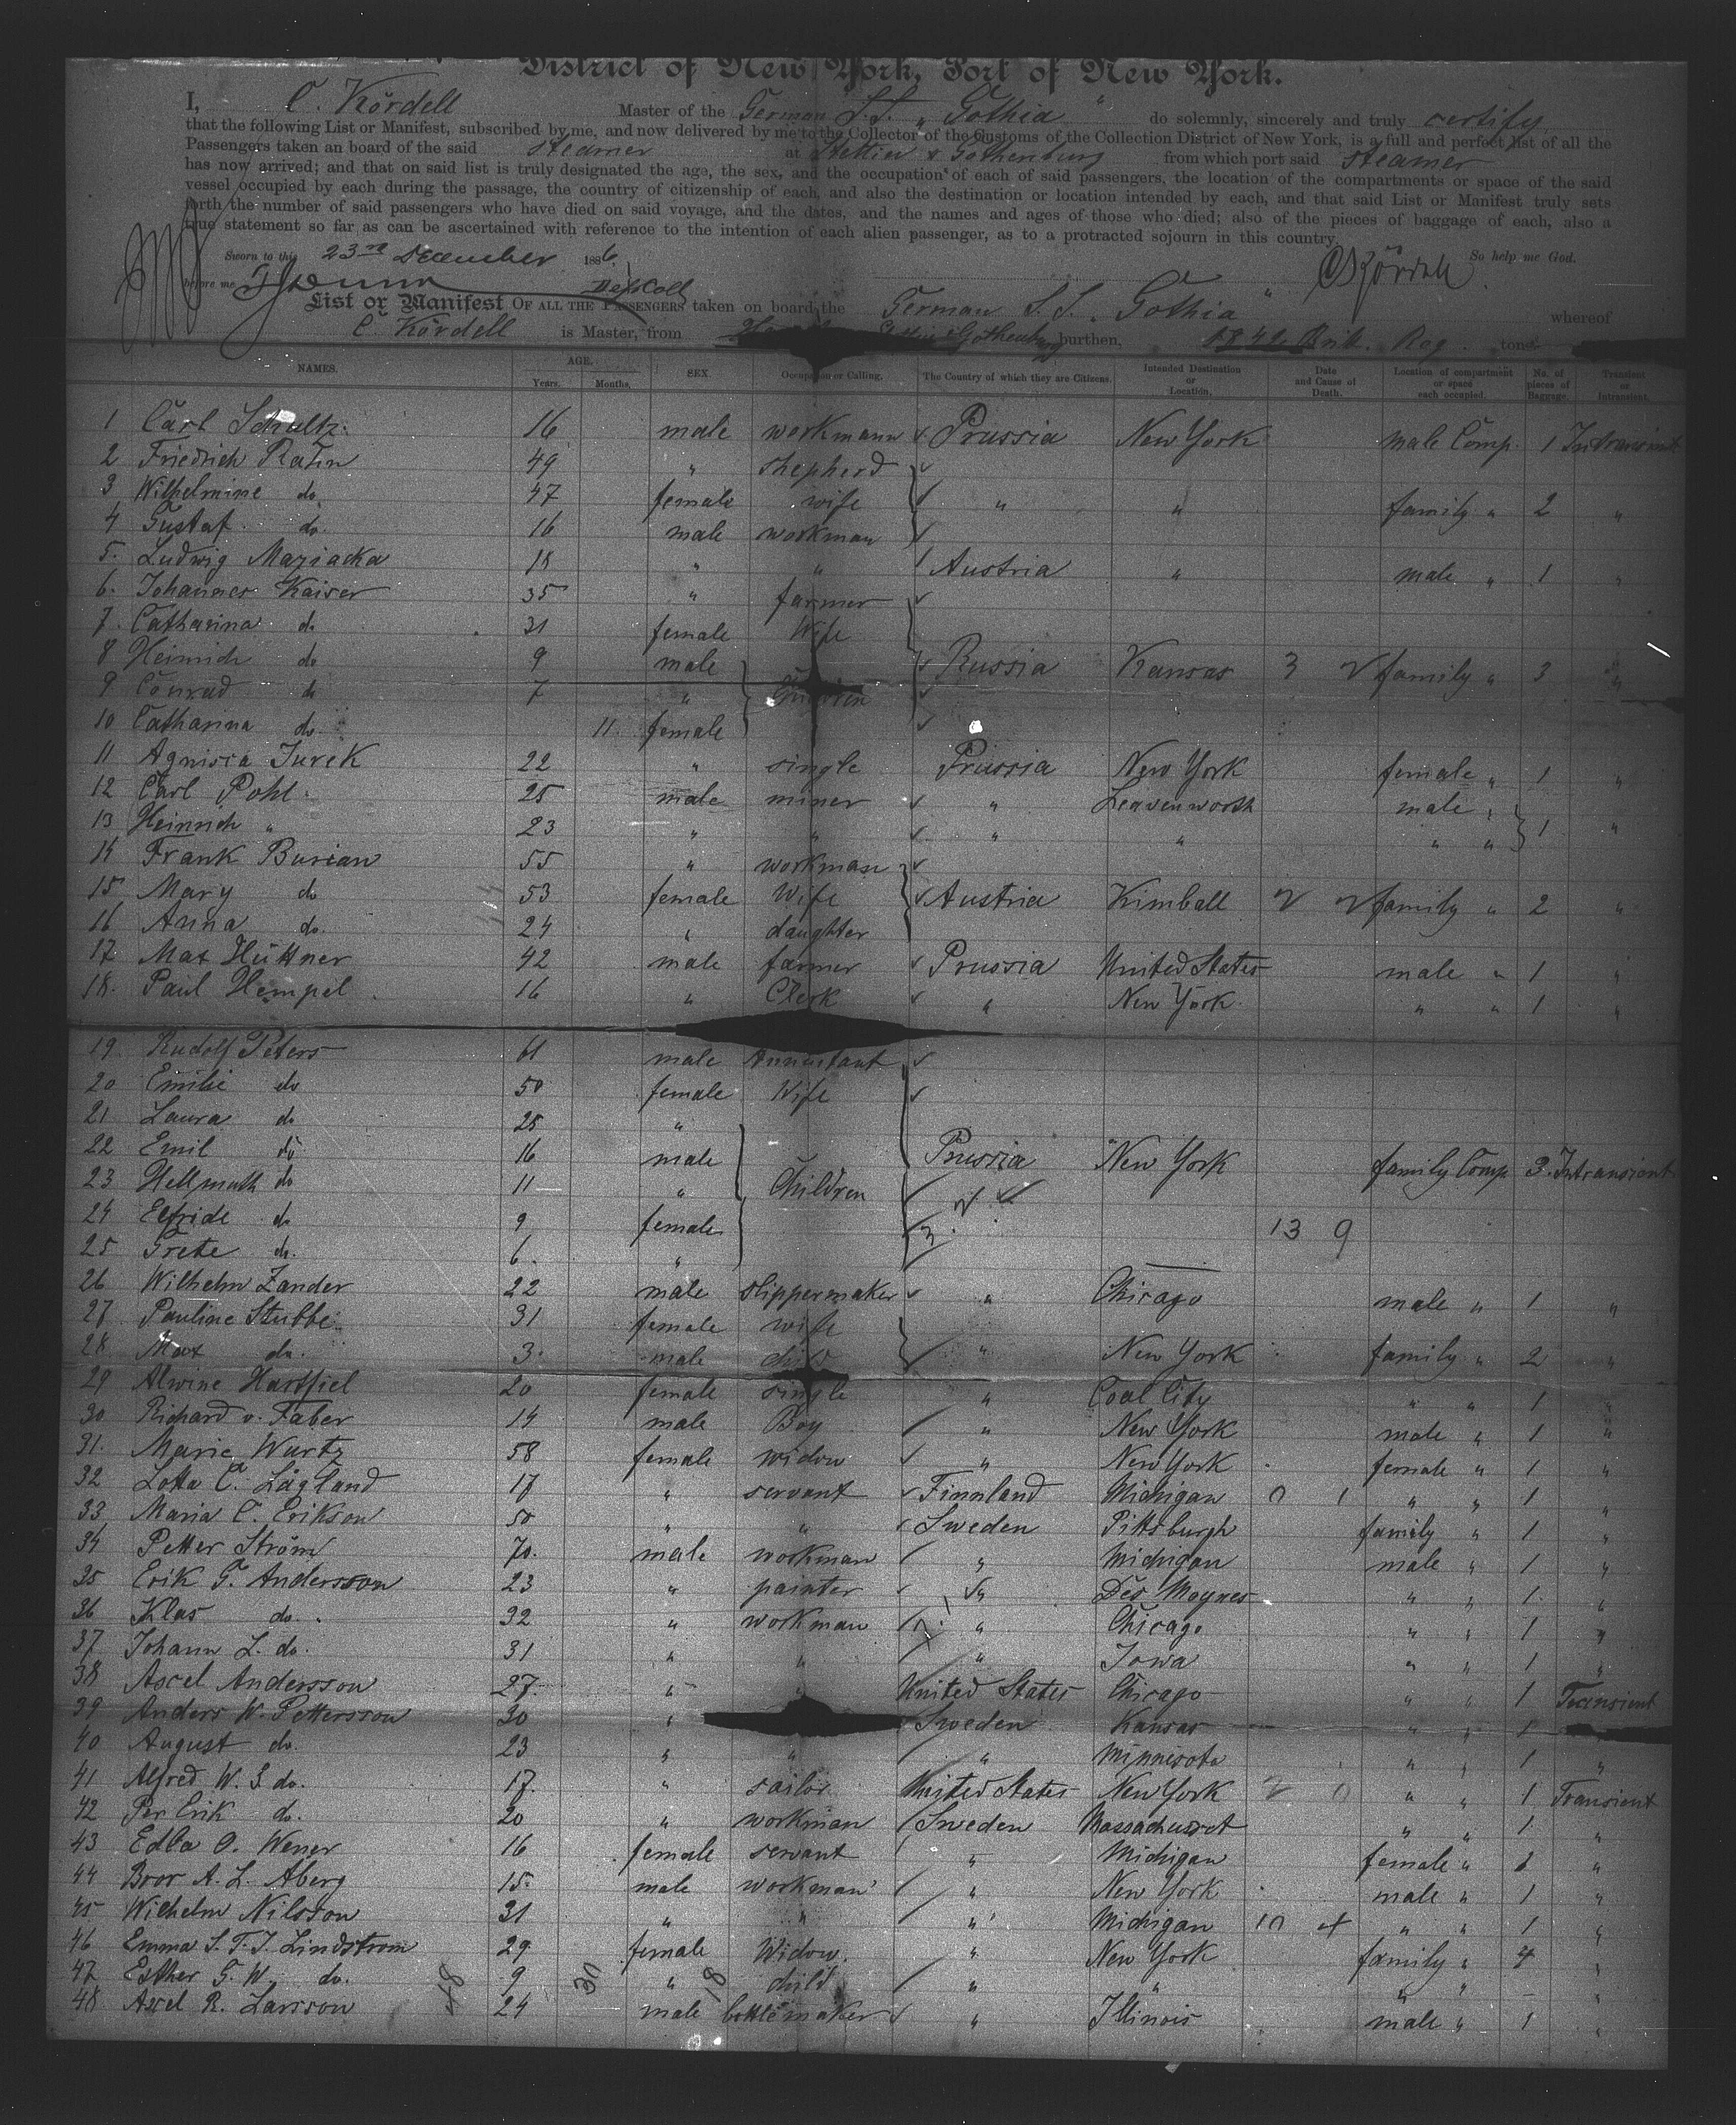 District of New York, Port of New York.
I, C. Kördell Master of the German S.S. „Gothia" do solemnly, sincerely and truly certify
that the following List or Manifest, subscribed by me, and now delivered by me to the Collector of the Customs of the Collection District of New York, is a full and perfect list of all the
Passengers taken on board of the said steamer at Stettin & Gothenburg from which port said steamer
has now arrived; and that on said list is truly designated the age, the sex, and the occupation of each of said passengers, the location of the compartments or space of the said
vessel occupied by each during the passage, the country of citizenship of each, and also the destination or location intended by each, and that said List or Manifest truly sets
forth the number of said passengers who have died on said voyage, and the dates, and the names and ages of those who died; also of the pieces of baggage of each, also a
true statement so far as can be ascertained with reference to the intention of each alien passenger, as to a protracted sojourn in this country.
Sworn to this 23rd December 1886 So help me God.
before me CKördell
List or Manifest OF ALL THE PASSENGERS taken on board the German S.S. „Gothia" whereof
C. Kördell is Master, from Stettin & Gothenburg burthen, 1842 Brit. Reg. tons
NAMES. AGE. Years. Months. SEX. Occupation or Calling. The Country of which they are Citizens. Intended Destination or Location. Date and Cause of Death. Location of compartment or space each occupied. No. of pieces of Baggage. Transient or Intransient.
1 Carl Schultz 16 male workmann Prussia New York male Comp. 1 Intransient
2 Friedrich Rahn 49 " shepherd
3 Wilhelmine do. 47 female wife " " family " 2 "
4 Gustaf do. 16 male workman
5. Ludwig Maziacka 18 " " Austria " male " 1 "
6. Johannes Kaiser 35 " farmer
7. Catharina do. 31 female Wife
8 Heinrich do 9 male Russia Kansas 3 family " 3 "
9 Conrad do 7 " Children
10 Catharina do. 11 female
11 Agnisca Jurek 22 " single Prussia New York female " 1 "
12 Carl Pohl 25 male miner " Leavenworth male "
13 Heinrich " 23 " " " " " " 1 "
14 Frank Burian 55 " workman
15 Mary do 53 female Wife Austria Kimball family " 2 "
16 Anna do. 24 " daughter
17. Max Hüttner 42 male farmer Prussia United States male " 1 "
18. Paul Hempel 16 " Clerk " New York " " 1 "
19. Rudolf Peters 61 male Annuitant
20 Emilie do 50 female Wife
21 Laura do 25 "
22 Emil do 16 male Prussia New York family Comp. 3 Intransient
23 Hellmuth do 11 " Children
24 Elfride do 9 female 13 9
25 Grete do. 6. "
26 Wilhelm Zander 22 male slippermaker " Chicago male " 1 "
27 Pauline Stubbe 31 female wife
28 Max do. 3. male child " New York family " 2 "
29 Alwine Hartfiel 20 female single " Coal City " " 1 "
30 Richard v. Faber 14 male Boy " New York male " 1 "
31. Marie Wurtz 58 female widow " New York female " 1 "
32 Lotta C. Lågland 17 " servant Finnland Michigan 0 1 " " 1 "
33 Maria C. Erikson 50 " " Sweden Pittsburgh family " 1 "
34 Petter Ström 70. male workman " Michigan male " 1 "
35 Erik G. Andersson 23 " painter " Des Moynes " " 1. "
36 Klas do. 32 " workman " Chicago " " 1 "
37 Johann L. do. 31 " " " Iowa " " 1 "
38 Axel Andersson 27. " " United States Chicago " " 1 Transient
39 Anders W. Pettersson 30 " Sweden Kansas " " 1
40 August do. 23 " " " Minnisota " " 1 "
41 Alfred W. S. do. 17. " sailor United States New York " " 1 Transient
42 Per Erik do. 20 " workman Sweden Massachusset " " 1 "
43 Edla O. Wener 16 female servant " Michigan female " 1 "
44 Bror A. L. Aberg 15. male workman " New York male " 1 "
45 Wilhelm Nilsson 31 " " " Michigan 10 4 " " 1 "
46 Emma S. T. J. Lindstrom 29. female Widow. " New York family " 4 "
47 Esther G. W. do. 9 " child " " " " – "
48. Axel R. Larsson 24 male bottlemaker " Illinois male " 1 "
48 30 18